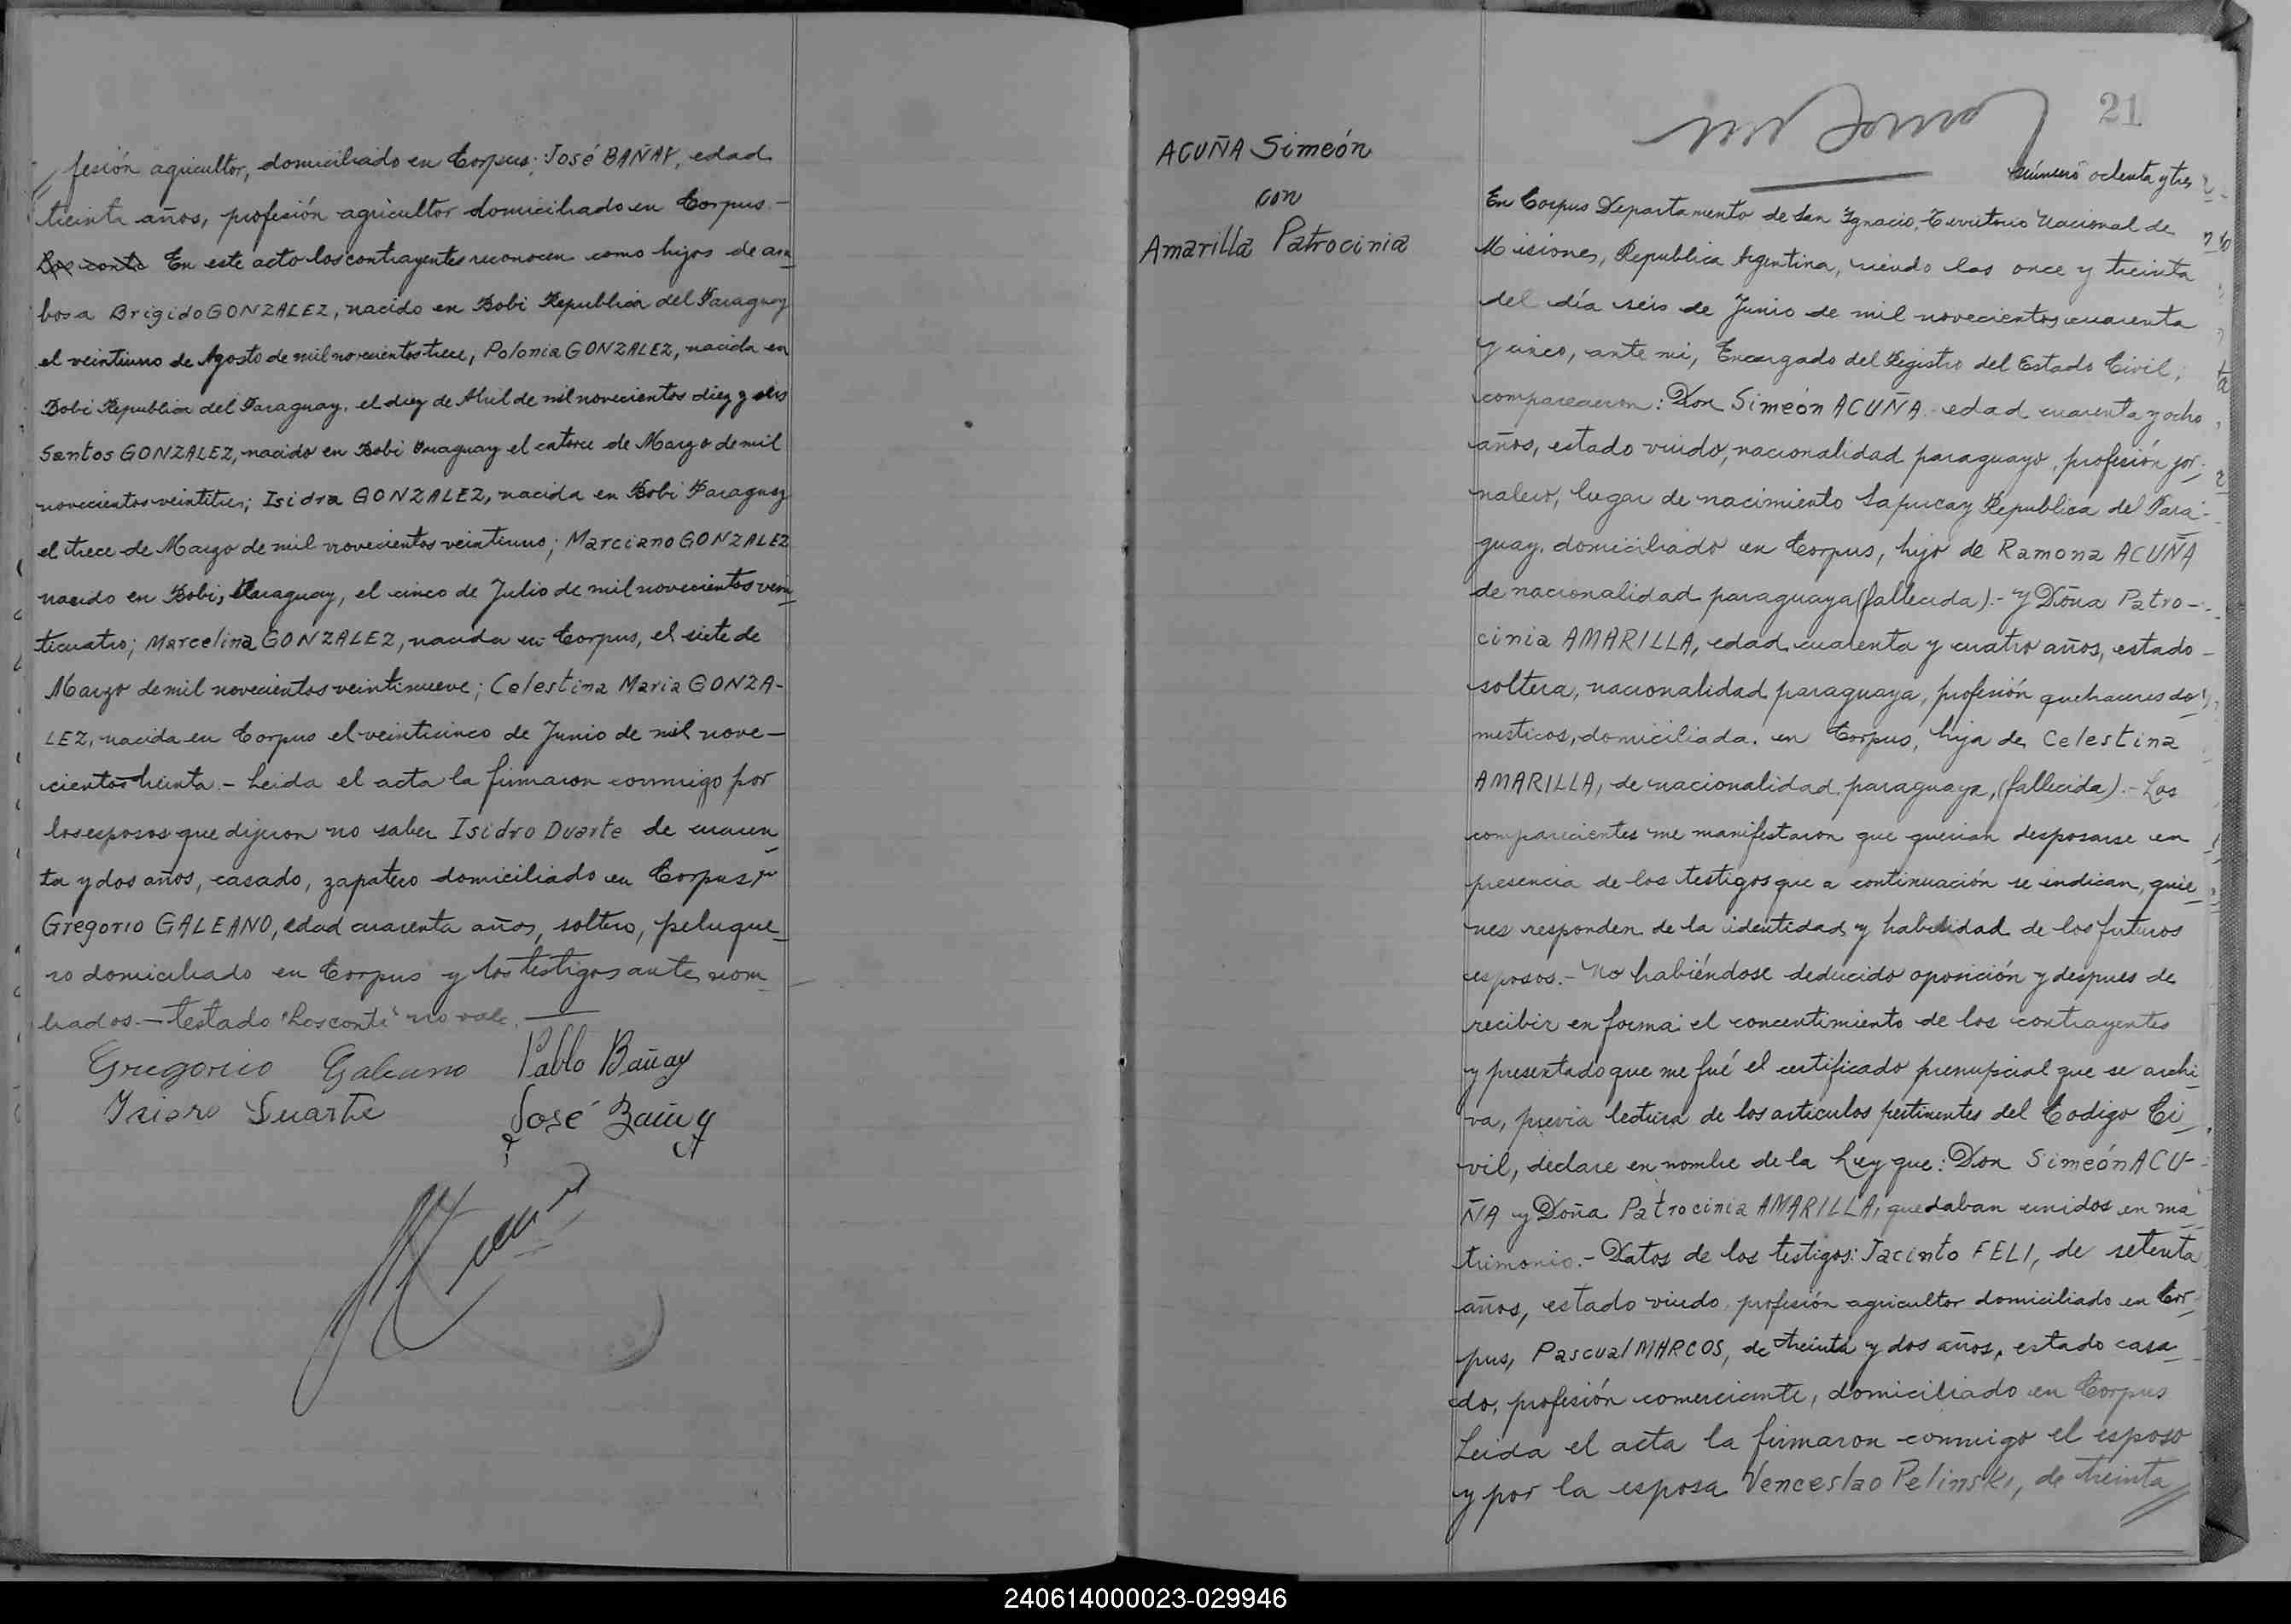 fesión agricultor, domiciliado en Corpus; José BAÑAY, edad
treinta años, profesión agricultor domiciliado en Corpus.-
Los conte En este acto los contrayentes reconocen como hijos de am
bos a Brigido GONZALEZ, nacido en Bobi Republica del Paraguay
el veintiuno de Agosto de mil novecientos trece, Polonia GONZALEZ, nacida en
Bobi Republica del Paraguay, el diez de Abril de mil novecientos diez y seis
Santos GONZALEZ, nacido en Bobi Paraguay el catorce de Marzo de mil
novecientos veintitres; Isidra GONZALEZ, nacida en Bobi Paraguay
el trece de Marzo de mil novecientos veintiuno; Marciano GONZALEZ
nacido en Bobi, Paraguay, el cinco de Julio de mil novecientos vein
ticuatro; Marcelina GONZALEZ, nacida en Corpus, el siete de
Marzo de mil novecientos veintinueve; Celestina Maria GONZA-
LEZ, nacida en Corpus el veinticinco de Junio de mil nove-
cientos treinta.- Leida el acta la firmaron conmigo por
los esposos que dijeron no saber Isidro Duarte de cuaren
ta y dos años, casado, zapatero domiciliado en Corpus y
Gregorio GALEANO, edad cuarenta años, soltero, peluque
ro domiciliado en Corpus y los testigos ante nom
brados.- Testado "Los conte" no vale.
Gregorio Galeano Pablo Bañay
Isidro Duarte José Bañay
21
ACUÑA Simeón
con
Amarilla Patrocinia
Número ochenta y tres
En Corpus Departamento de San Ignacio, Territorio Nacional de
Misiones, Republica Argentina, siendo las once y treinta
del día seis de Junio de mil novecientos cuarenta
y cinco, ante mi, Encargado del Registro del Estado Civil,
comparecieron: Don Simeón ACUÑA edad cuarenta y ocho
años, estado viudo, nacionalidad paraguayo, profesión jor-
nalero, lugar de nacimiento Sapucay Republica del Para-
guay, domiciliado en Corpus, hijo de Ramona ACUÑA
de nacionalidad paraguaya (fallecida).- Y Doña Patro-
cinia AMARILLA, edad cuarenta y cuatro años, estado
soltera, nacionalidad paraguaya, profesión quehaceres do
mesticos, domiciliada en Corpus, hija de Celestina
AMARILLA, de nacionalidad paraguaya, (fallecida).- Los
comparecientes me manifestaron que querian desposarse en
presencia de los testigos que a continuación se indican, quie
nes responden de la identidad y habilidad de los futuros
esposos.- No habiéndose deducido oposición y despues de
recibir en forma el concentimiento de los contrayentes
y presentado que me fué el certificado prenupcial que se archi
va, previa lectura de los articulos pertinentes del Codigo Ci
vil, declare en nombre de la Ley que: Don Simeón ACU-
ÑA y Doña Patrocinia AMARILLA, quedaban unidos en ma
trimonio.- Datos de los testigos: Jacinto FELI, de setenta
años, estado viudo, profesión agricultor domiciliado en Cor
pus, Pascual MARCOS, de treinta y dos años, estado casa
do, profesión comerciante, domiciliado en Corpus
Leida el acta la firmaron conmigo el esposo
y por la esposa Venceslao Pelinski, de treinta
240614000023-029946